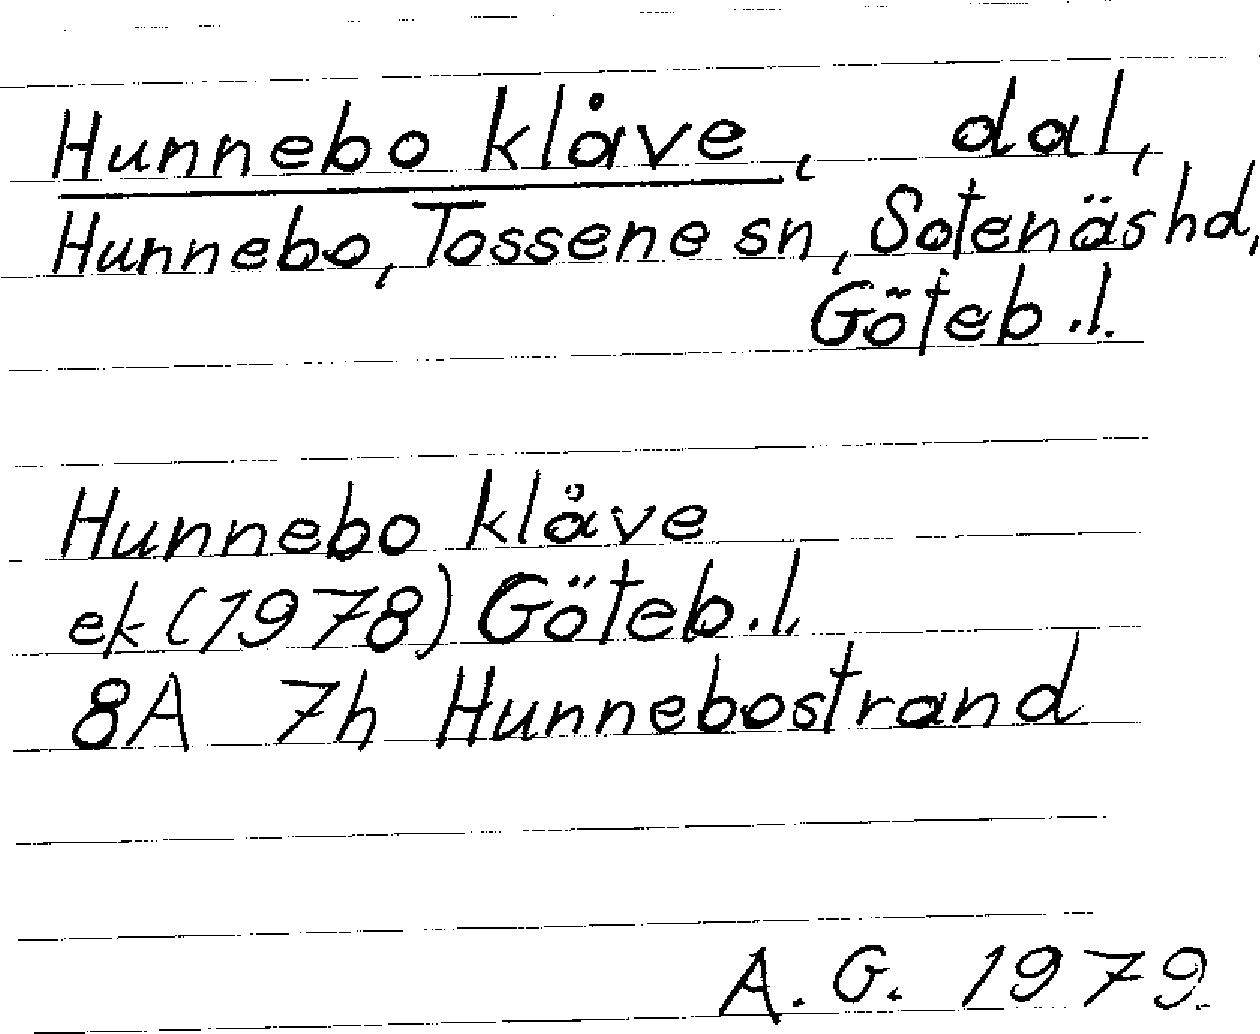 Hunnebo klåve, dal,
Hunnebo, Tossene sn, Sotenäs hd,
Göteb.l.
Hunnebo klåve
ek (1978) Göteb.l.
8A 7h Hunnebostrand
A.G. 1979.